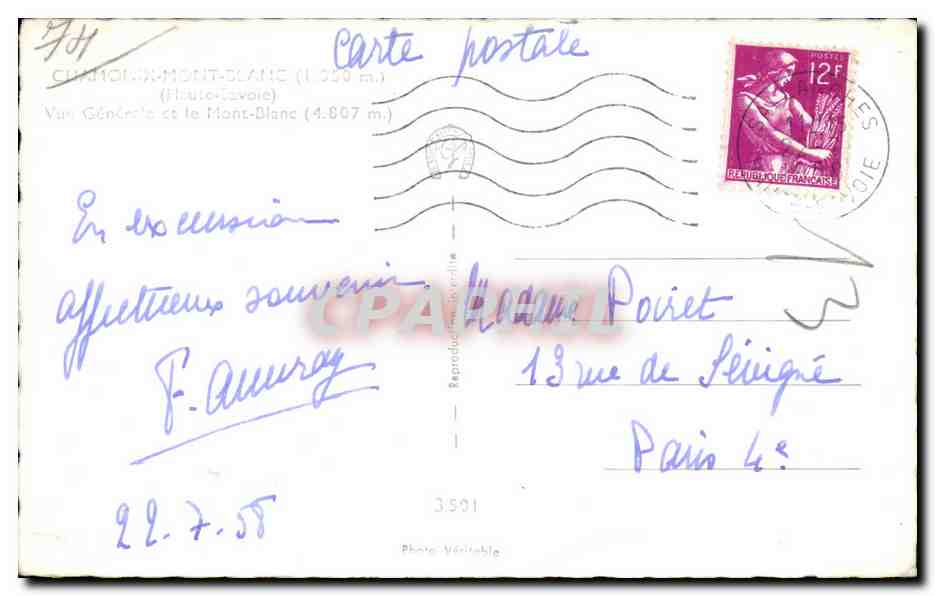 74
Carte postale
CHAMONIX-MONT-BLANC (1.050 m.)
(Haute-Savoie)
Vue Générale et le Mont-Blanc (4.807 m.)
12F
POSTES
REPUBLIQUE FRANÇAISE
En excursion
affectueux souvenir
F. Auvray
22.7.58
Reproduction interdite
CPAPHIL
Madame Poiret
13 rue de Sévigné
Paris 4e
3.501
Photo Véritable